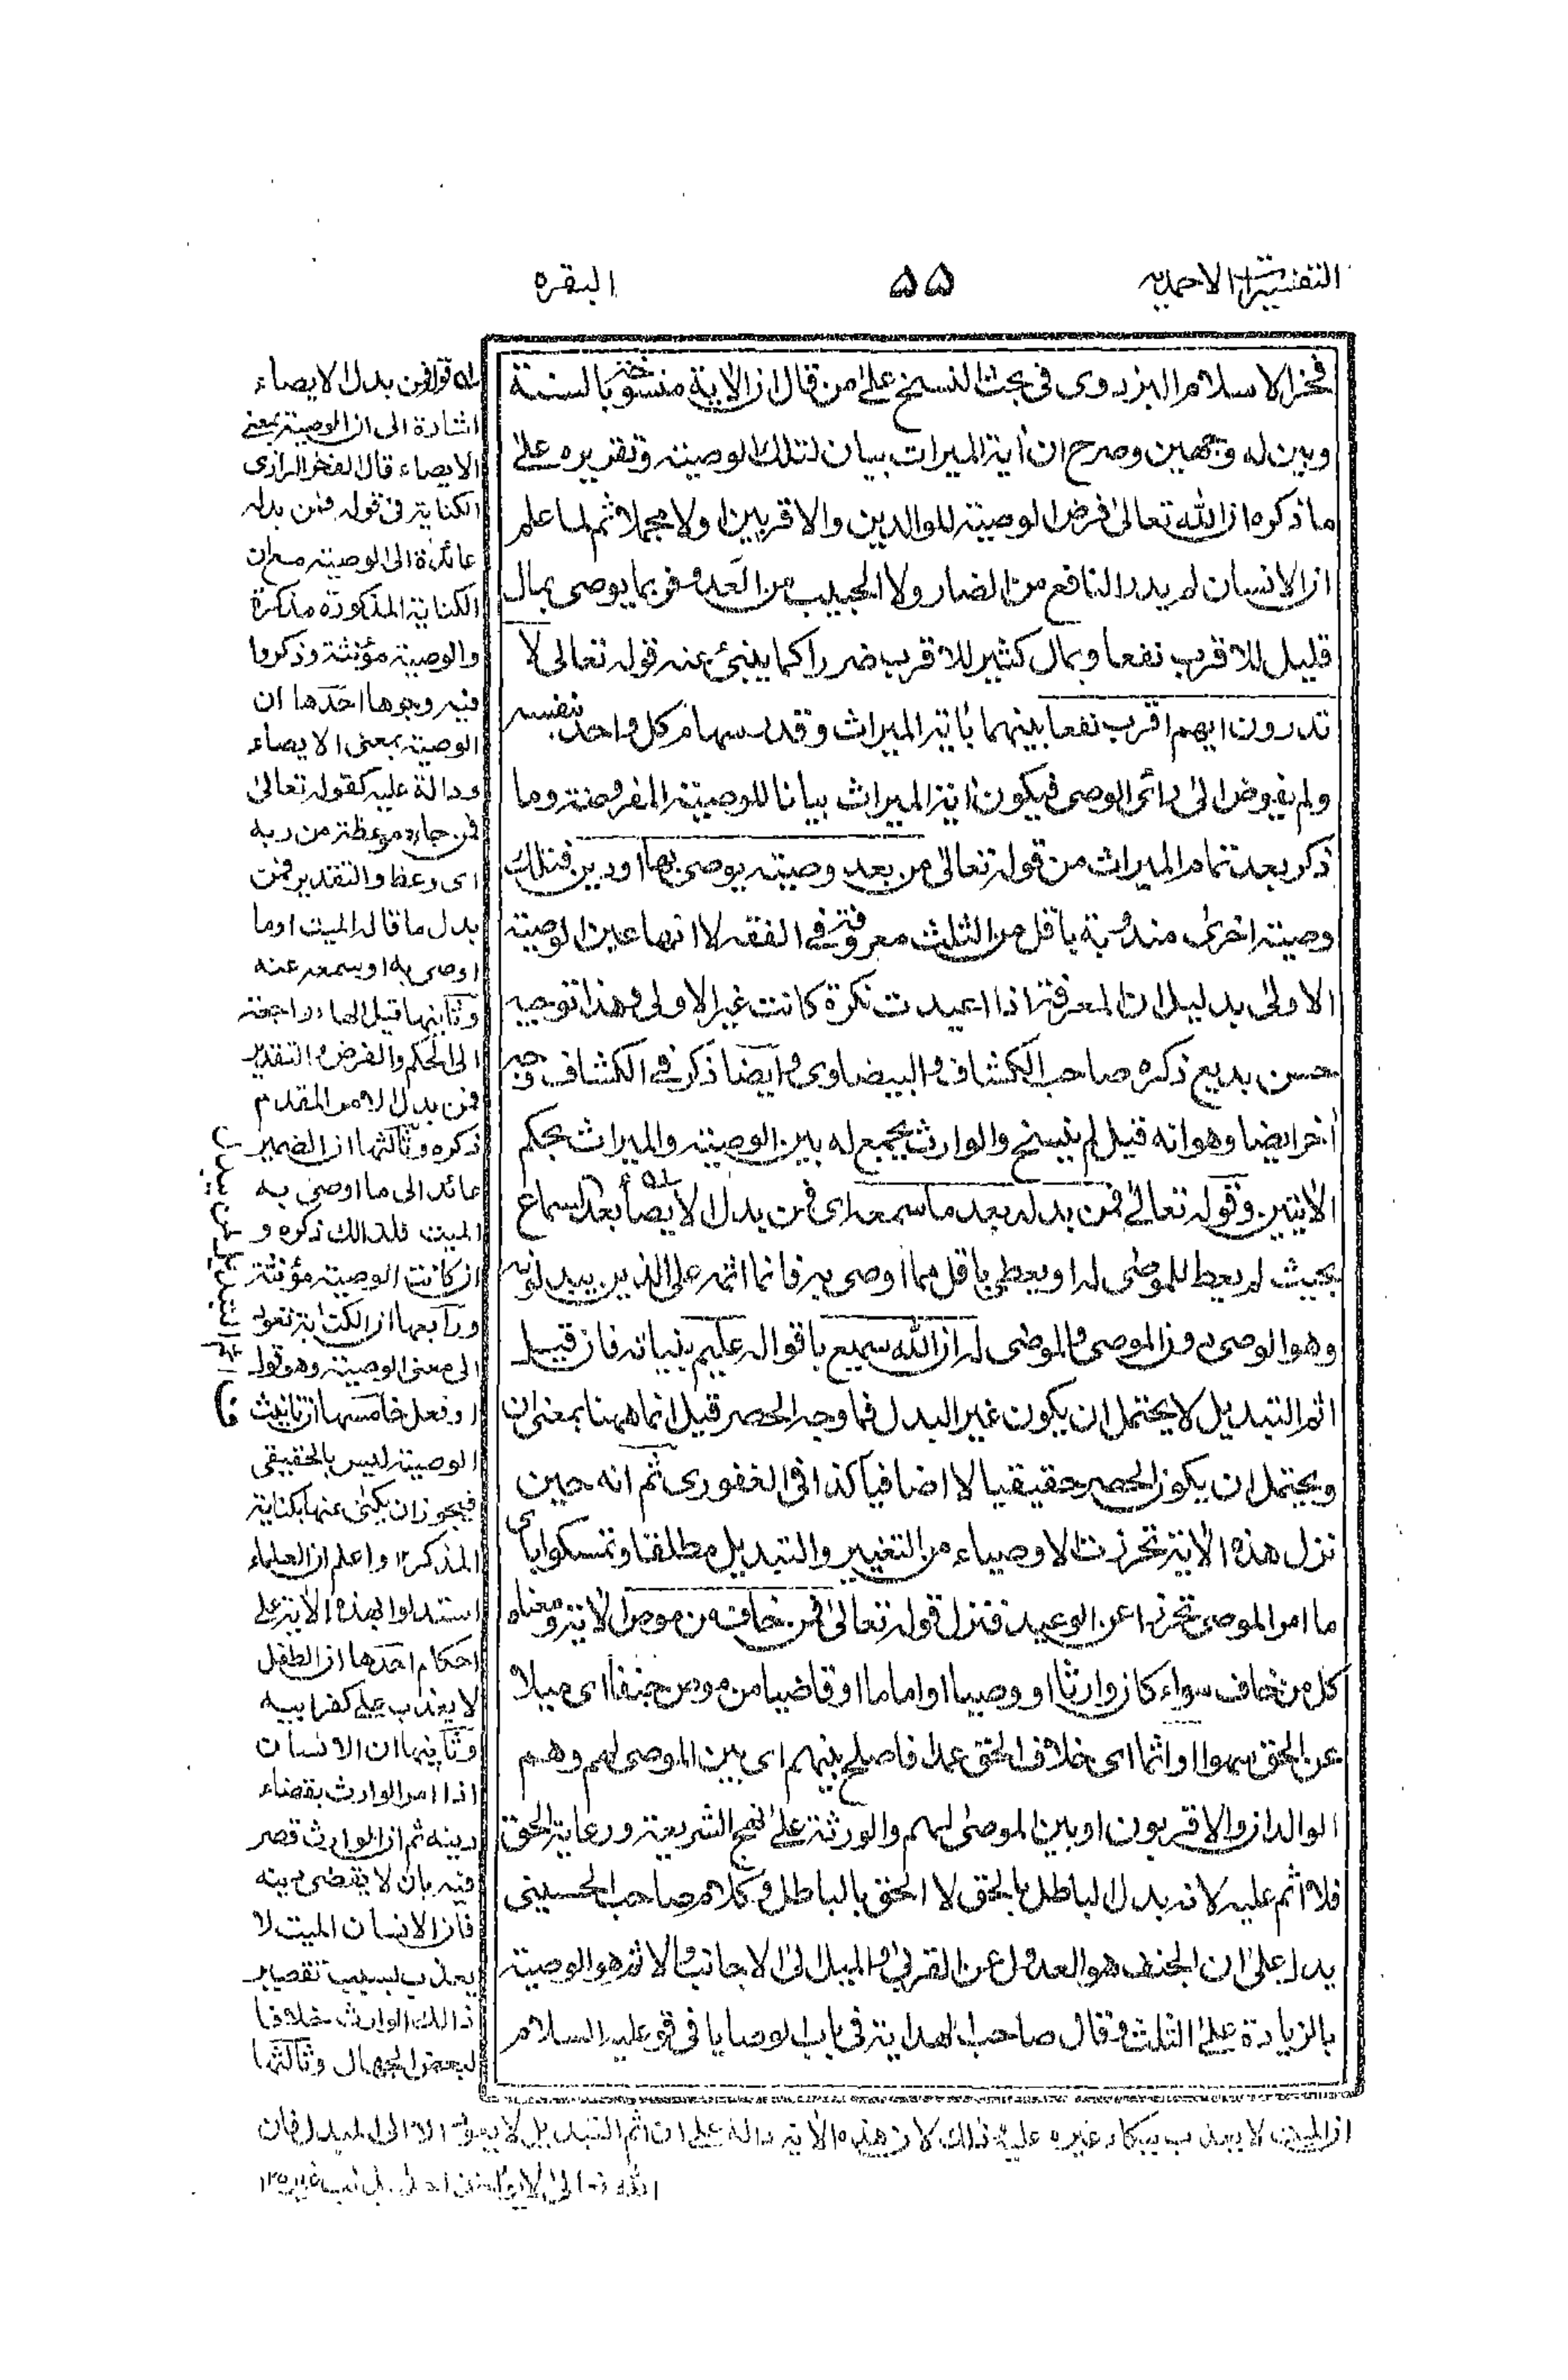 التفسيرات الاحمديه
۵۵
البقره
فخر الاسلام البزدوى فى بحث النسخ على من قال ان الاية منسوخة بالسنة
وبين له وجهين وصرح ان أية الميراث بيان لتلك الوصية وتقريره على
ما ذكره ان الله تعالى فرض الوصية للوالدين والاقربين اولا مجملا ثم لما علم
ان الانسان لم يدر النافع من الضار ولا الحبيب من العدو فربما يوصى بمال
قليل للاقرب نفعا وبمال كثير للاقرب ضررا كما ينبئ عنه قوله تعالى لا
تدرون ايهم اقرب نفعا بينهما باية الميراث وقدر سهام كل واحد بنفسه
ولم يفوض الى رائى الوصى فيكون اية الميراث بيانا للوصية المفروضة وما
ذكر بعد تمام الميراث من قوله تعالى من بعد وصية يوصى بها او دين فتلك
وصية اخرى مندوبة باقل من الثلث معروفة في الفقه لا انها عين الوصية
الاولى بدليل ان المعرفة اذا اعيدت نكرة كانت غير الاولى وهذا توجيه
حسن بديع ذكره صاحب الكشاف والبيضاوى وايضا ذكر في الكشاف وجه
أخر ايضا وهو انه قيل لم ينسخ والوارث يجمع له بين الوصية والميراث بحكم
الأيتين وقوله تعالى فمن بدله بعد ما سمعه اى فمن بدل الايصاء بعد السماع
بحيث لم يعط للموصى له او يعطى باقل مما اوصى به فانما اثمه على الذين يبدلونه
وهو الوصى دون الموصى والموصى له ان الله سميع باقواله عليم بنياته فان قيل
اثم التبديل لا يحتمل ان يكون غير البدل فما وجه الحصر قيل انما ههنا بمعنى ان
ويحتمل ان يكون الحصر حقيقيا لا اضافيا كذا فى الغفورى ثم انه حين
نزل هذه الأية تحرزت الاوصياء من التغيير والتبديل مطلقا وتمسكوا باى
ما امر الموصى تحرزا عن الوعيد فنزل قوله تعالى فمن خاف من موص الأية ومعناه
كل من خاف سواء كان وارثا او وصيا او اماما او قاضيا من موص جنفا اى ميلا
عن الحق سهوا او اثما اى خلاف الحق عمدا فاصلح بينهم اى بين الموصى لهم وهم
الوالدان والاقربون او بين الموصى لهم والورثة على نهج الشريعة ورعاية الحق
فلا اثم عليه لانه بدل الباطل بالحق لا الحق بالباطل وكلام صاحب الحسينى
يدل على ان الجنف هو العدول عن القربى والميل الى الاجانب والاثم هو الوصية
بالزيادة على الثلث وقال صاحب الهداية فى باب الوصايا فى قوله عليه السلام
له قوله فمن بدل الايصاء
اشارة الى ان الوصية بمعنى
الايصاء قال الفخر الرازى
الكناية فى قوله فمن بدله
عائدة الى الوصية مع ان
الكناية المذكورة مذكرة
والوصية مؤنثة وذكروا
فيه وجوها احدها ان
الوصية بمعنى الايصاء
ودالة عليه كقوله تعالى
فمن جاءه موعظة من ربه
اى وعظ والتقدير فمن
بدل ما قاله الميت او ما
اوصى به او سمعه عنه
وثانيها قيل الهاء راجعة
الى الحكم والفرض والتقدير
فمن بدل الامر المقدم
ذكره وثالثها ان الضمير
عائد الى ما اوصى به
الميت فلذلك ذكره و
ان كانت الوصية مؤنثة
ورابعها ان الكناية تعود
الى معنى الوصية وهو قول
او فعل خامسها ان تانيث
الوصية ليس بالحقيقى
فيجوز ان يكنى عنها بكناية
المذكر١٢ واعلم ان العلماء
استدلوا بهذه الأية على
احكام احدها ان الطفل
لا يعذب على كفر ابيه
وثانيها ان الانسان
اذا امر الوارث بقضاء
دينه ثم ان الوارث قصر
فيه بان لا يقضى دينه
فان الانسان الميت لا
يعذب بسبب تقصير
ذالك الوارث خلافا
لبعض الجهال وثالثها
ان الميت لا يعذب ببكاء غيره عليه ذلك لان هذه الأية دالة على ان اثم التبديل لا يعود الا الى المبدل فان
الله تعالى لا يؤاخذ احدا بذنب غيره١٢